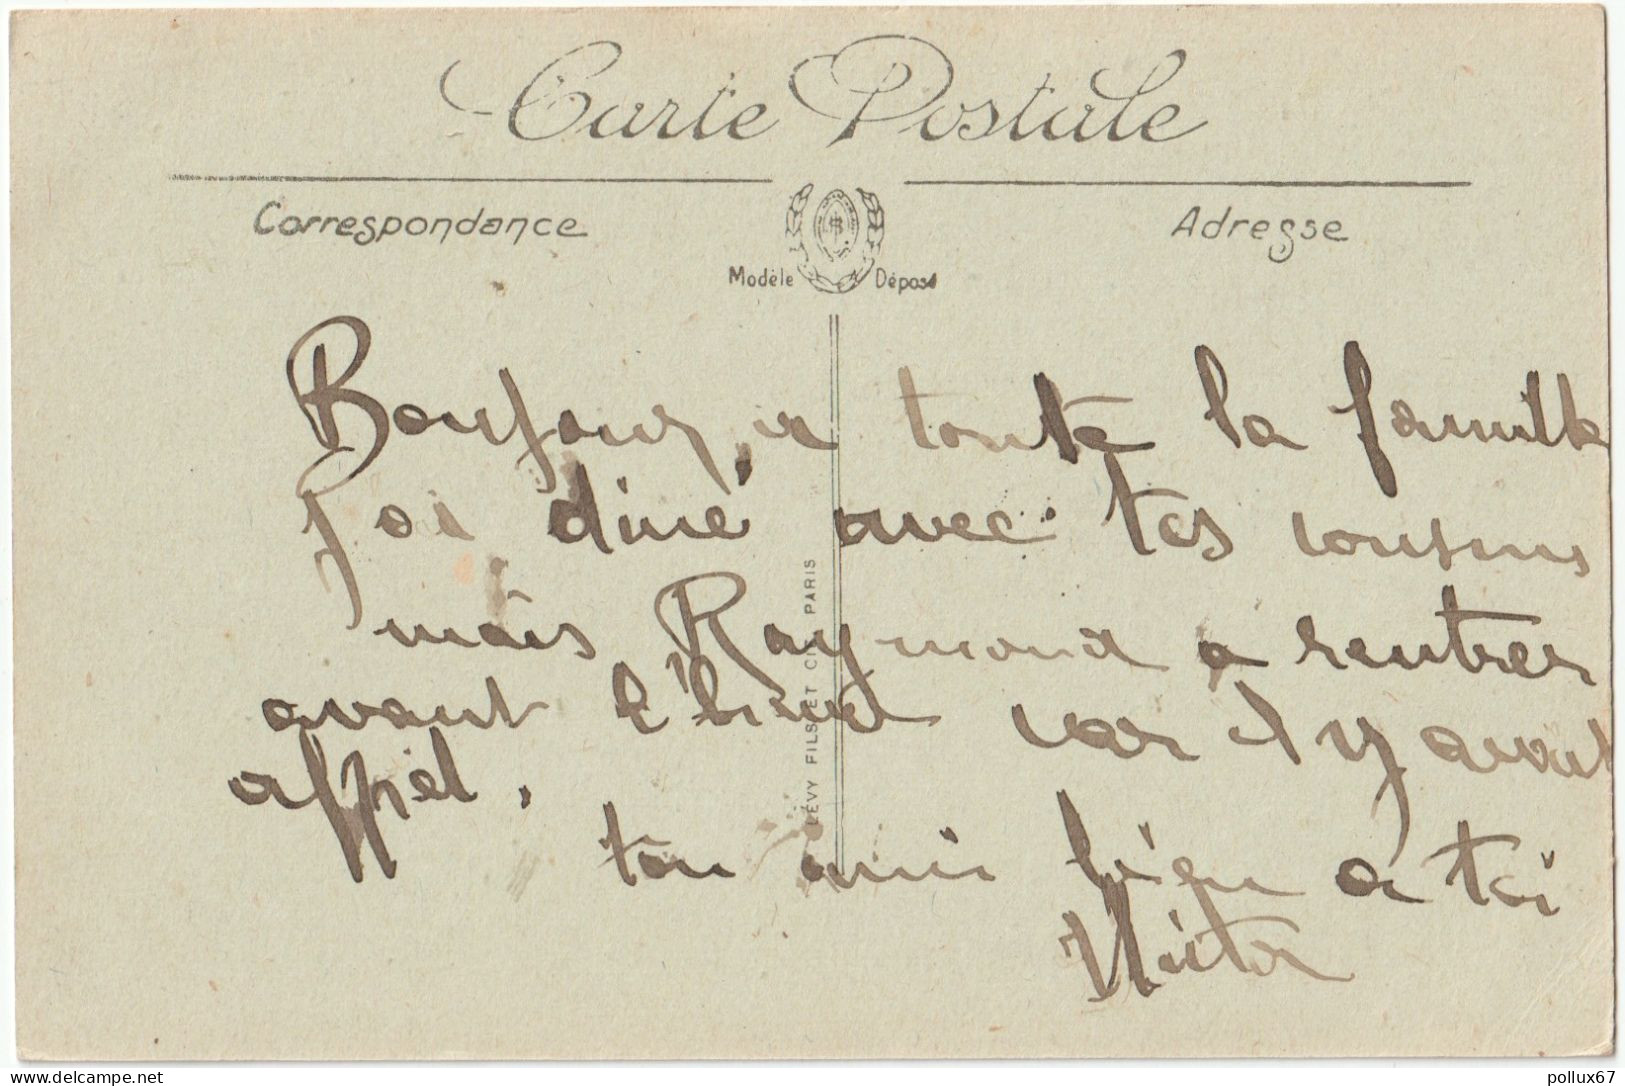 Carte Postale
Correspondance
Adresse
Modèle Déposé
LÉVY FILS ET CIE PARIS
Bonjour a toute la famille
J'ai diné avec tes cousins
mais Raymond a rentrer
avant l'heure car il y avait
appel.
ton ami bien a toi
Victor
delcampe.net
pollux67